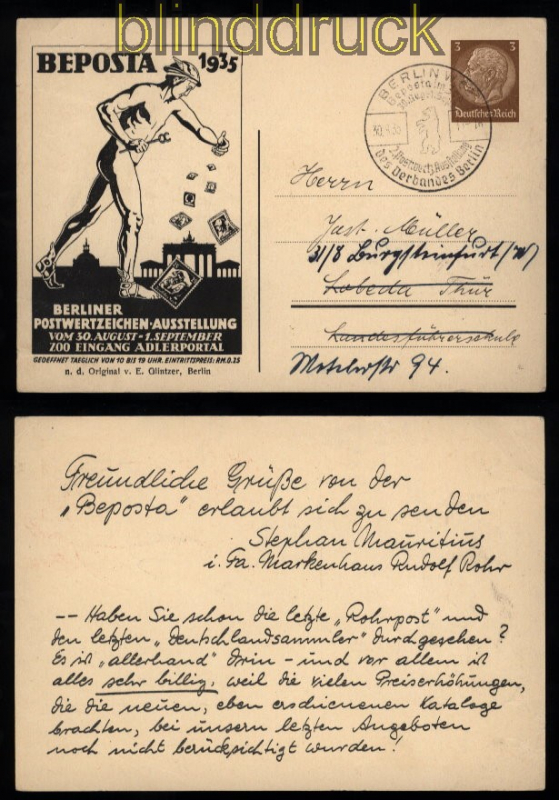 blinddruck
BEPOSTA 1935
BERLINER
POSTWERTZEICHEN-AUSSTELLUNG
VOM 30. AUGUST - 1. SEPTEMBER
ZOO EINGANG ADLERPORTAL
GEOEFFNET TAEGLICH VON 10 BIS 19 UHR. EINTRITTSPREIS: RM. 0.25
n. d. Original v. E. Glintzer, Berlin
BERLIN W
30.8.35
des Verbandes Berlin
3 3
Deutsches Reich
Herrn
Just. Müller
31/8 Burgsteinfurt
Lobeda Thür
Landesführerschule
94.
Freundliche Grüße von der
„Beposta“ erlaubt sich zu senden
Stephan Mauritius
i. Fa. Markenhaus Rudolf Rohr
-- Haben Sie schon die letzte „Rohrpost“ und
den letzten „Deutschlandsammler“ durchgesehen?
Es ist „allerhand“ drin – und vor allem ist
alles sehr billig, weil die vielen Preiserhöhungen,
die die neuen, eben erschienenen Kataloge
brachten, bei unsern letzten Angeboten
noch nicht berücksichtigt wurden!